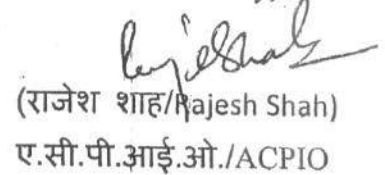 (राजेश शाह/Rajesh Shah)
ए.सी.पी.आई.ओ./ACPIO